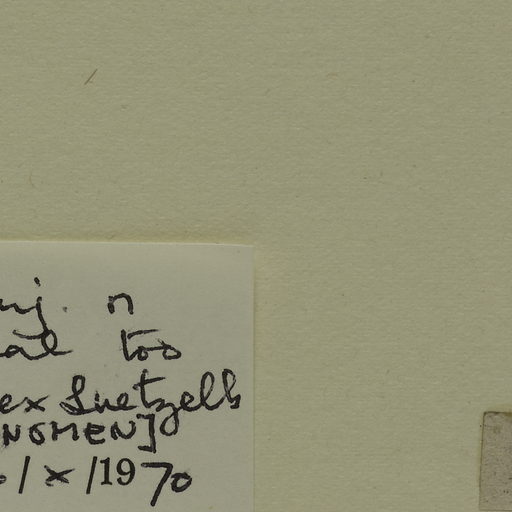 nj. n
al too
ex Luetzelb
NOMEN]
0/x/1970